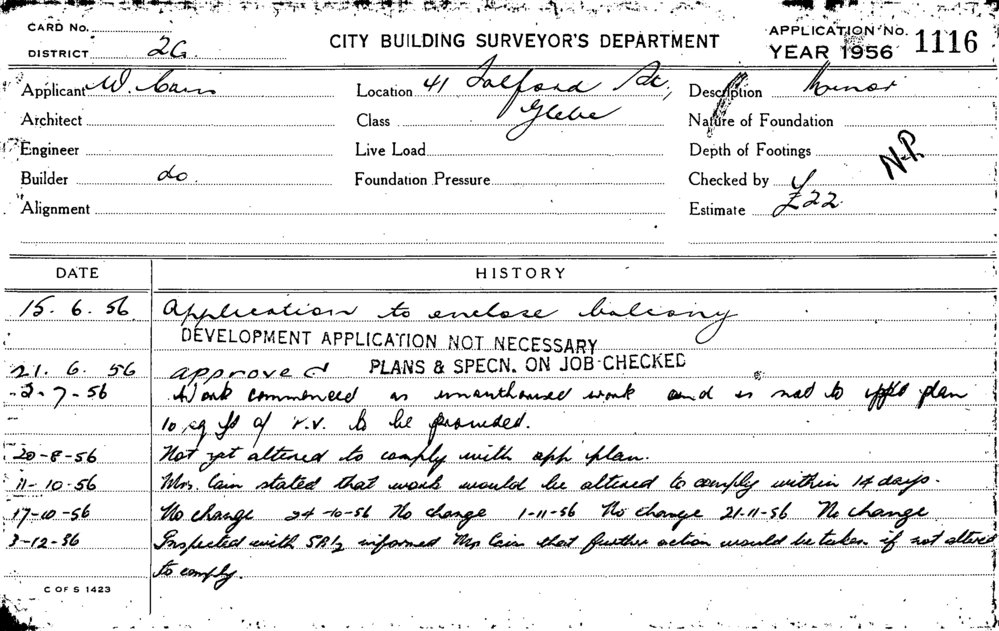 CARD No.
DISTRICT 2G.
CITY BUILDING SURVEYOR'S DEPARTMENT
APPLICATION No. 1116
YEAR 1956
Applicant W. Cain Location 41 Talford St, Description Minor
Architect Class Glebe Nature of Foundation
Engineer Live Load Depth of Footings N.P.
Builder do. Foundation Pressure Checked by
Alignment Estimate £22
DATE HISTORY
15. 6. 56 Application to enclose balcony
DEVELOPMENT APPLICATION NOT NECESSARY
21. 6. 56 approved PLANS & SPECN. ON JOB CHECKED
2-7-56 Work commenced as unauthorised work and is not to plan
10 sq ft of r.v. to be provided.
20-8-56 Not yet altered to comply with app plan.
11-10-56 Mrs. Cain stated that work would be altered to comply within 14 days.
17-10-56 No change 24-10-56 No change 1-11-56 No change 21-11-56 No change
3-12-56 Inspected with informed Mrs Cain that further action would be taken if not altered
to comply.
C OF S 1423